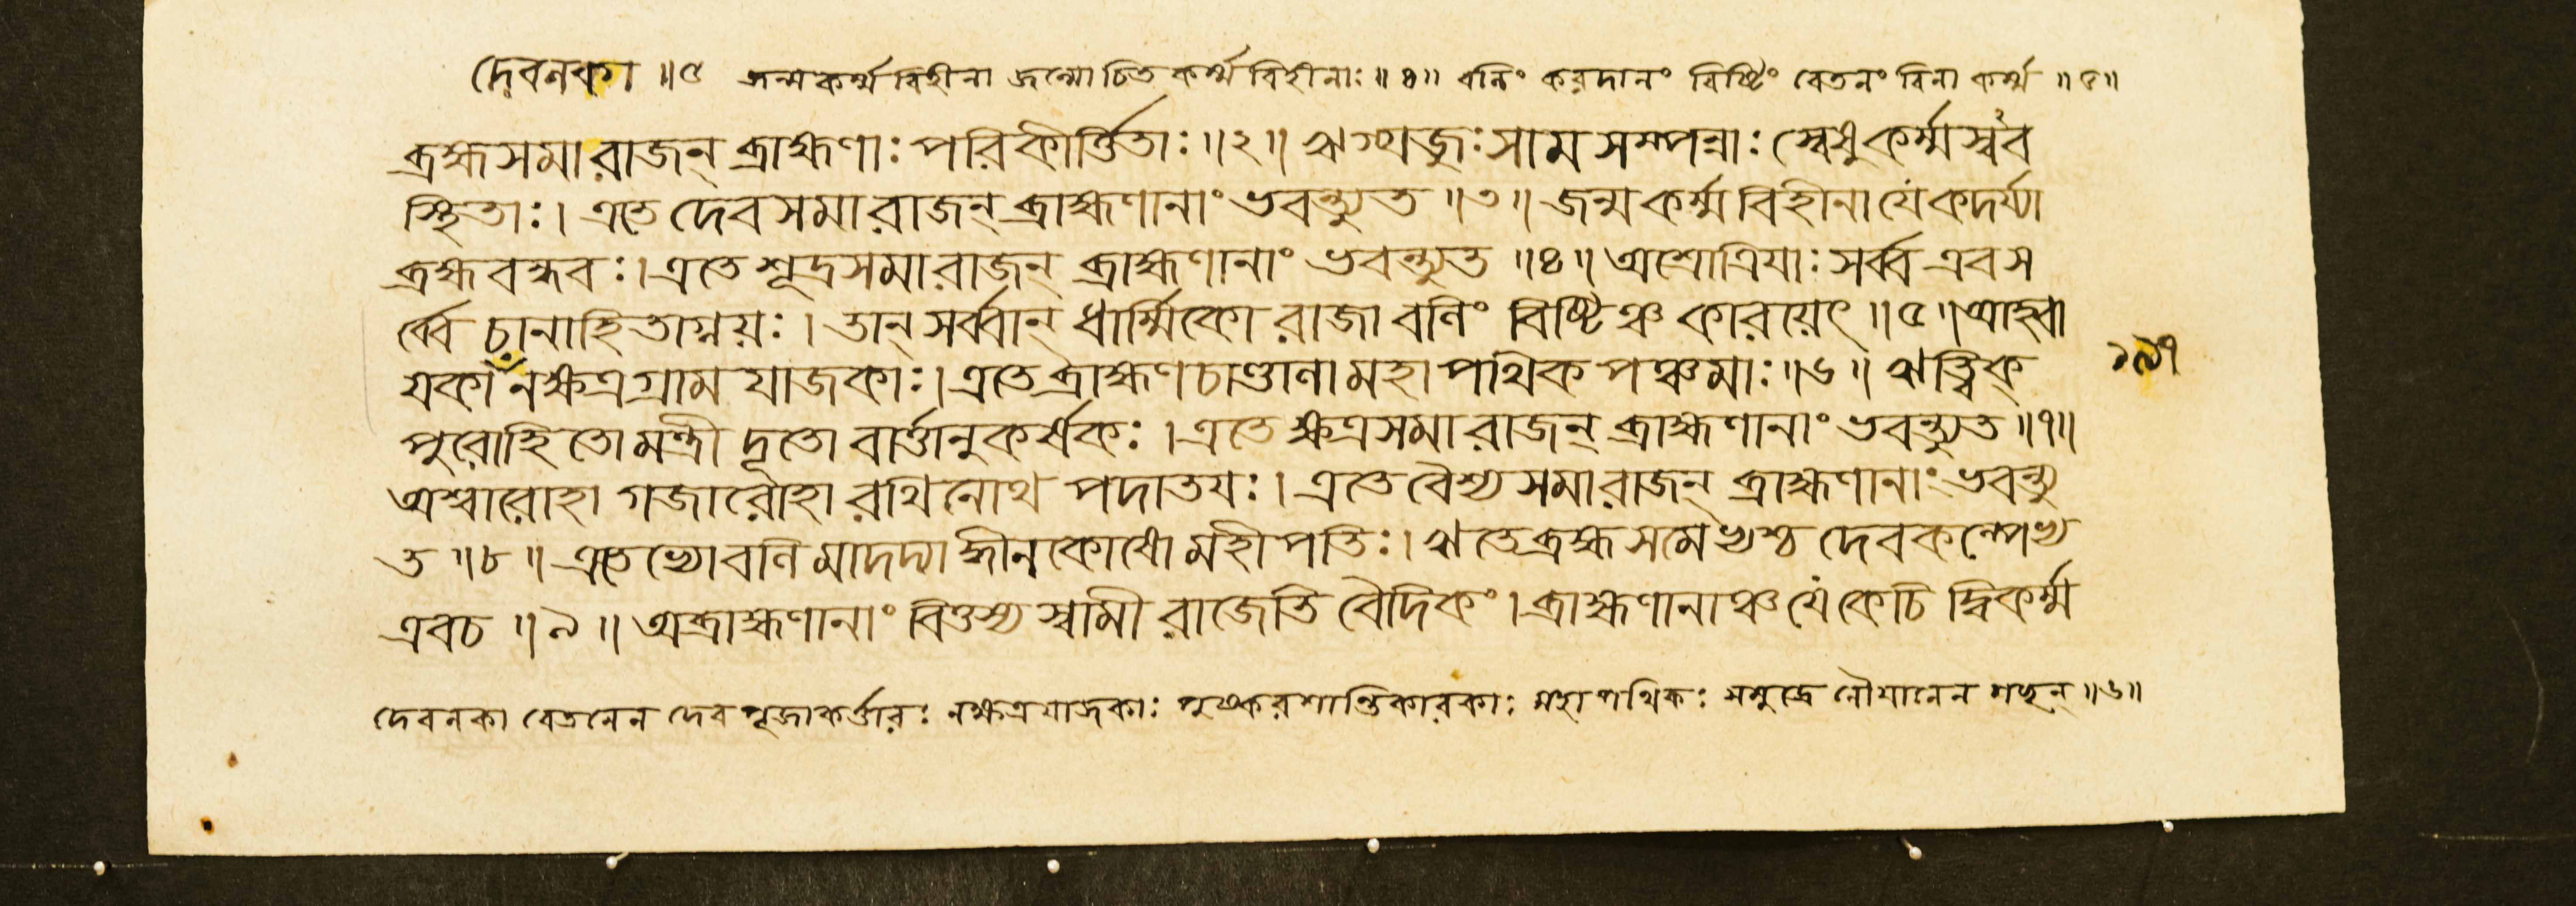 দেবলকা ॥৫ জন্মকর্ম্মবিহীনা জন্মোচিতকর্ম্মবিহীনাঃ ॥৪॥ বলিং করদানং বিষ্টিং বেতনং বিনা কর্ম্ম ॥৫॥
ব্রহ্মসমারাজন্ ব্রাহ্মণাঃ পরিকীর্ত্তিতাঃ ॥২॥ ঋগ্যজুঃসামসম্পন্নাঃ স্বেষুকর্ম্মস্বব
স্থিতাঃ। এতে দেবসমারাজন্ ব্রাহ্মণানাং ভবন্ত্যুত ॥৩॥ জন্মকর্ম্মবিহীনা যে কদর্য্যা
ব্রহ্মবন্ধবঃ। এতে শূদ্রসমারাজন্ ব্রাহ্মণানাং ভবন্ত্যুত ॥৪॥ অশ্রোত্রিয়াঃ সর্ব্ব এব স
র্ব্বে চানাহিতাগ্নয়ঃ। তান্ সর্ব্বান্ ধার্ম্মিকো রাজা বলিং বিষ্টিঞ্চ কারয়েৎ ॥৫॥ আহ্বা
য়কা নক্ষত্রগ্রামযাজকাঃ। এতে ব্রাহ্মণচাণ্ডালা মহাপথিকপঞ্চমাঃ ॥৬॥ ঋত্বিক্
১৯৭
পুরোহিতো মন্ত্রী দূতো বার্ত্তানুকর্ষকঃ। এতে ক্ষত্রসমারাজন্ ব্রাহ্মণানাং ভবন্ত্যুত ॥৭॥
অশ্বারোহা গজারোহা রথিনোথ পদাতয়ঃ। এতে বৈশ্যসমারাজন্ ব্রাহ্মণানাং ভবন্ত্যু
ত ॥৮॥ এতেভ্যো বলিমাদদ্যাদ্ধীনকোষো মহীপতিঃ। ঋতে ব্রহ্মসমেভ্যশ্চ দেবকল্পেভ্য
এবচ ॥৯॥ অব্রাহ্মণানাং বিত্তস্য স্বামী রাজেতি বৈদিকং। ব্রাহ্মণানাঞ্চ যে কেচিদ্বিকর্ম্ম
দেবলকা বেতনেন দেবপূজাকর্ত্তারঃ নক্ষত্রযাজকাঃ শান্তিকারকাঃ মহাপথিকঃ সমুদ্রে নৌযানেন গচ্ছন্ ॥৬॥